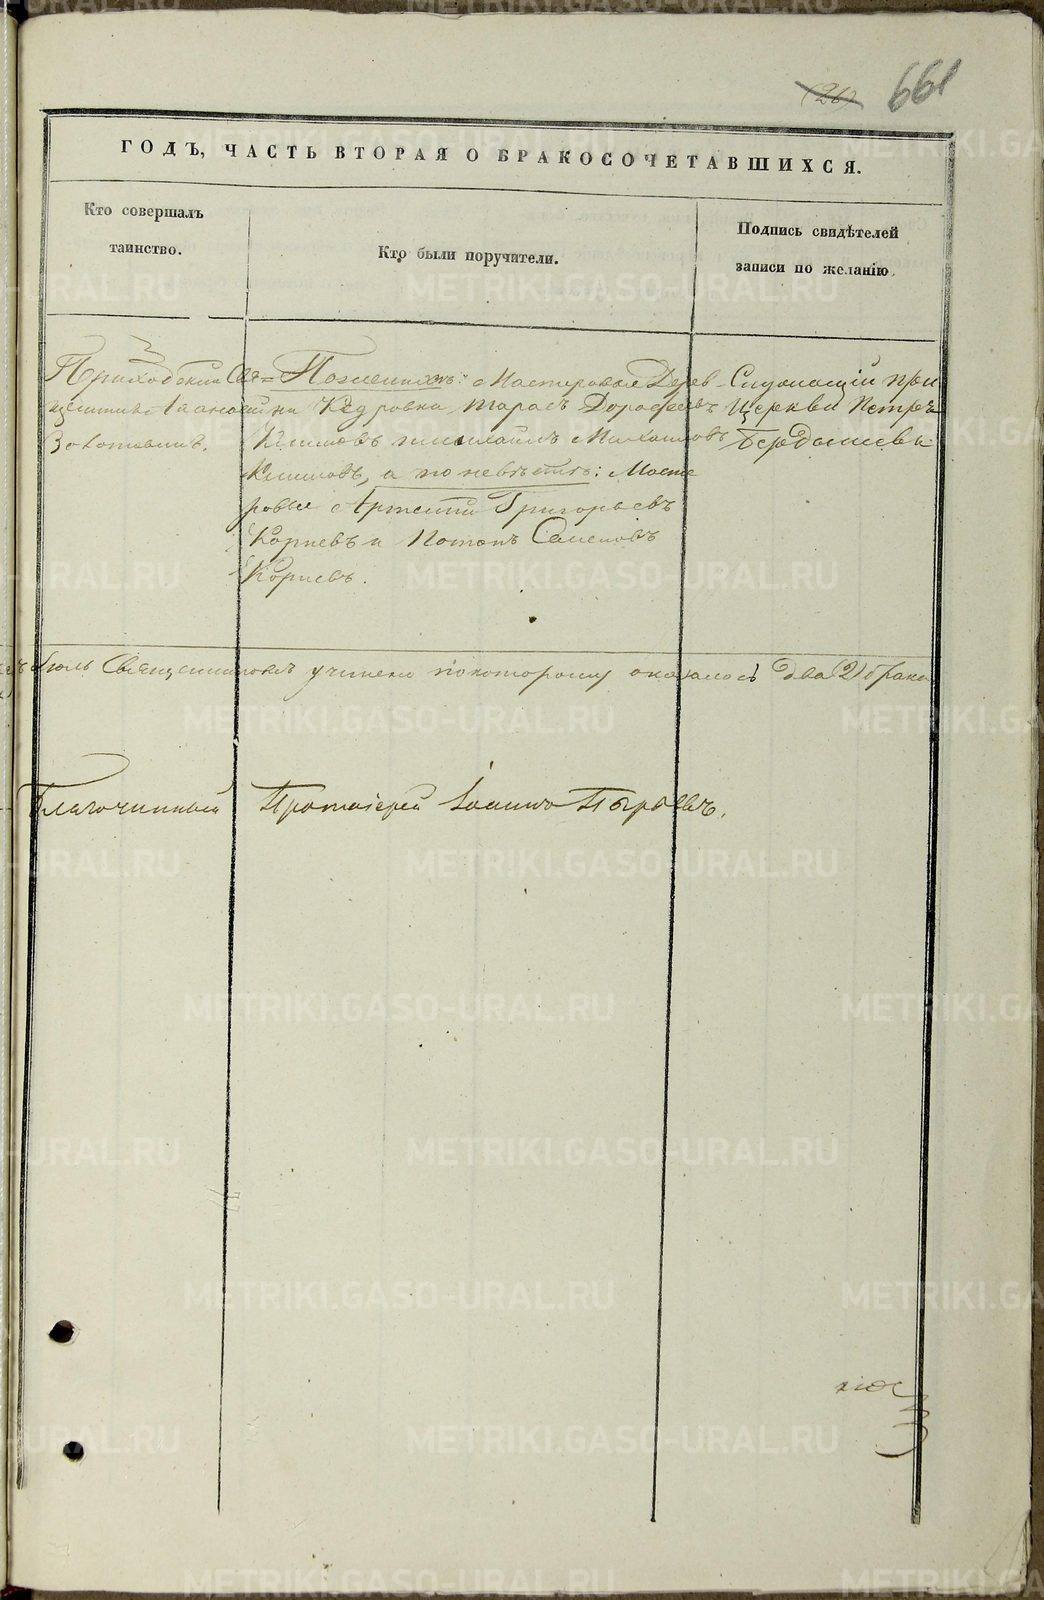 (26) 661
ГОДЪ, ЧАСТЬ ВТОРАЯ О БРАКОСОЧЕТАВШИХСЯ.
Кто совершалъ
таинство.
Кто были поручители.
Подпись свидѣтелей
записи по желанію.
Приходскій Свя=
щенникъ Аѳанасій
Золотавинъ.
По женихѣ: Мастеровые Дерев
ни Кедровки Тарасъ Дороѳеевъ
Климовъ и Михаилъ Михаиловъ
Климовъ, а по невѣстѣ: Масте
ровые Артемій Григорьевъ
Корневъ и Потапъ Семеновъ
Корневъ.
Служащій при
Церкви Петръ
Бердышевъ
Іюль Священникомъ учтено по которому оказалось два (2) брака
Благочинный Протоіерей Іоаннъ Пырьевъ.
METRIKI.GASO-URAL.RU